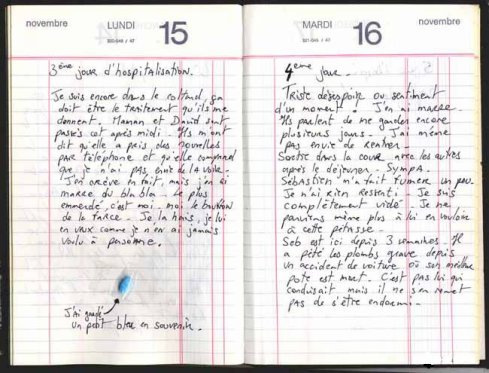 novembre
LUNDI 15
320-046 / 47
3ème jour d'hospitalisation.
Je suis encore dans le coltard, ça
doit être le traitement qu'ils me
donnent. Maman et David sont
passés cet après midi. Ils m'ont
dit qu'elle a pris des nouvelles
par téléphone et qu'elle comprend
que je n'ai pas envie de la voir.
J'en crève en fait, mais j'en ai
marre du bla bla. Le plus
emmerdé, c'est moi. moi le bouffon
de la farce. Je la hais, je lui
en veux comme je n'en ai jamais
voulu à personne.
J'ai gardé
un petit bleu en souvenir.
MARDI 16
novembre
321-045 / 47
4eme jour.
Triste désespoir ou sentiment
d'un moment ! J'en ai marre.
Ils parlent de me garder encore
plusieurs jours. J'ai même
pas envie de rentrer.
Sortie dans la cour avec les autres
après le déjeuner. Sympa.
Sébastien m'a fait fumer un peu.
Je n'ai rien ressenti. Je suis
complètement vidé. Je ne
parviens même plus à lui en vouloir
à cette pétasse.
Seb est ici depuis 3 semaines. Il
a pété les plombs grave depuis
un accident de voiture où son meilleur
pote est mort. C'est pas lui qui
conduisait mais il ne s'en remet
pas de s'être endormi.